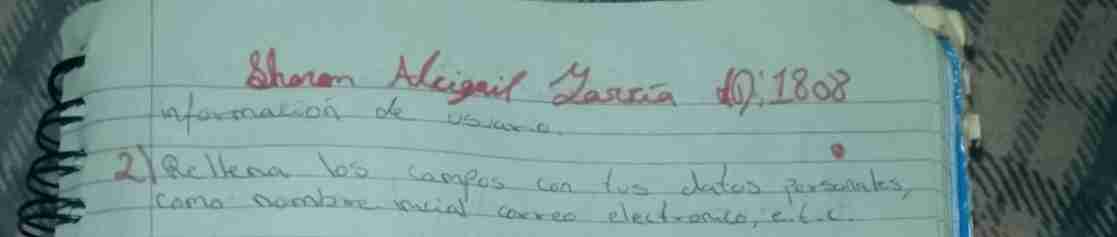 Sharon Abigail García ID: 1808
información de usuario.
2) Rellena los campos con tus datos personales,
como nombre inicial correo electronico, e.t.c.